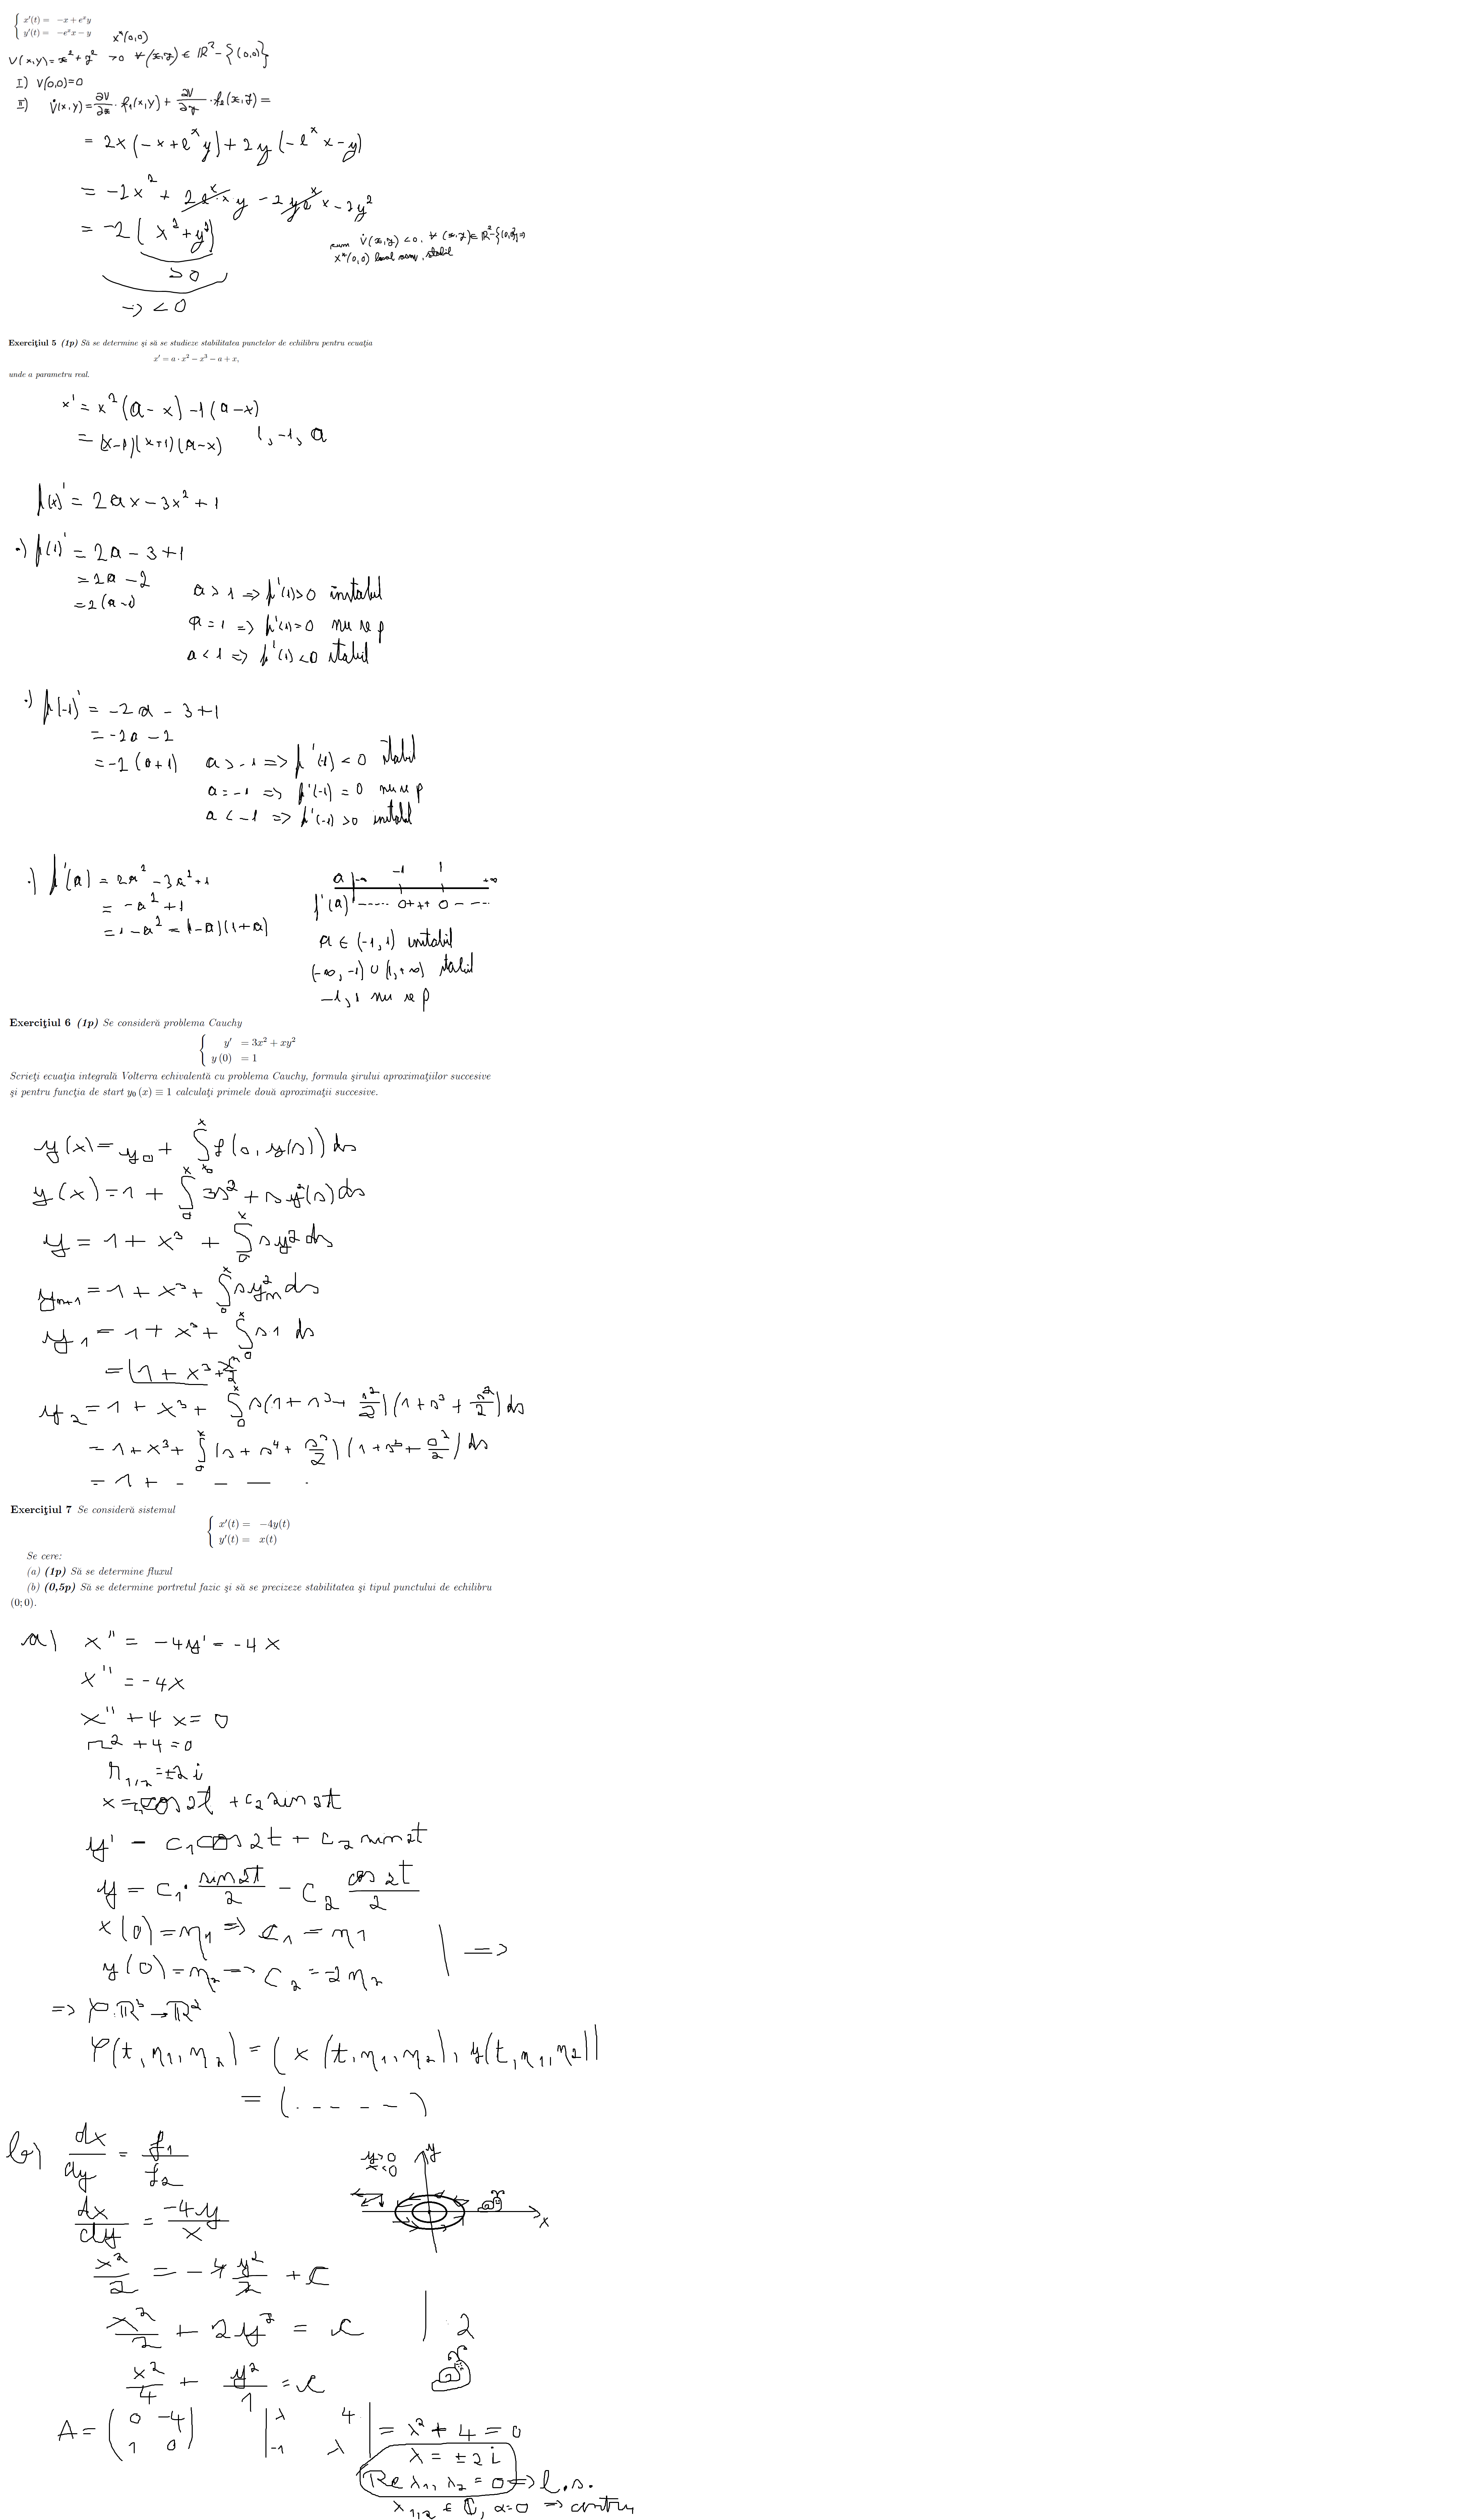 { x'(t) = −x + eˣy
y'(t) = −eˣx − y
x*(0,0)
V(x,y) = x² + y² >0 ∀(x,y) ∈ ℝ² − {(0,0)}
I) V(0,0)=0
II) V̇(x,y) = ∂V/∂x · f₁(x,y) + ∂V/∂y · f₂(x,y) =
= 2x(−x+eˣy) + 2y(−eˣx−y)
= −2x² + 2eˣ·xy − 2yeˣx − 2y²
= −2(x²+y²)
>0
→ <0
cum V̇(x,y) <0, ∀(x,y)∈ ℝ²−{(0,0)} ⇒
x*(0,0) local asim. stabil
Exercițiul 5 (1p) Să se determine și să se studieze stabilitatea punctelor de echilibru pentru ecuația
x′ = a · x² − x³ − a + x,
unde a parametru real.
x' = x²(a−x) −1(a−x)
= (x−1)(x+1)(a−x) 1, −1, a
f(x)' = 2ax − 3x² + 1
•) f(1)' = 2a − 3 + 1
= 2a − 2
= 2(a−1)
a > 1 ⇒ f'(1)>0 instabil
a = 1 ⇒ f'(1)=0 nu se p
a < 1 ⇒ f'(1)<0 stabil
•) f(−1)' = −2a − 3+1
= −2a − 2
= −2(a+1) a > −1 ⇒ f'(−1) < 0 stabil
a = −1 ⇒ f'(−1) = 0 nu se p
a < −1 ⇒ f'(−1) >0 instabil
•) f'(a) = 2a² − 3a² + 1
= −a² + 1
= 1−a² = (1−a)(1+a)
a | −∞ −1 1 +∞
f'(a) | ----- 0+++ 0 - ---
a ∈ (−1,1) instabil
(−∞, −1) ∪ (1,+∞) stabil
−1, 1 nu se p
Exercițiul 6 (1p) Se consideră problema Cauchy
{ y′ = 3x² + xy²
y (0) = 1
Scrieți ecuația integrală Volterra echivalentă cu problema Cauchy, formula șirului aproximațiilor succesive
și pentru funcția de start y₀ (x) ≡ 1 calculați primele două aproximații succesive.
y(x) = y₀ + ∫ₓ₀ˣ f(s, y(s)) ds
y(x) = 1 + ∫₀ˣ 3s² + sy²(s) ds
y = 1 + x³ + ∫₀ˣ sy² ds
yₙ₊₁ = 1 + x³ + ∫₀ˣ syₙ² ds
y₁ = 1 + x³ + ∫₀ˣ s1 ds
= 1 + x³ + x²/2
y₂ = 1 + x³ + ∫₀ˣ s(1+s³+ s²/2)(1+s³+ s²/2) ds
= 1+x³+ ∫₀ˣ (s + s⁴ + s³/2)(1+s³+ s²/2) ds
= 1 + - - — .
Exercițiul 7 Se consideră sistemul
{ x′(t) = −4y(t)
y′(t) = x(t)
Se cere:
(a) (1p) Să se determine fluxul
(b) (0,5p) Să se determine portretul fazic și să se precizeze stabilitatea și tipul punctului de echilibru
(0; 0).
a) x'' = −4y' = −4x
x'' = −4x
x'' + 4x = 0
r² + 4 = 0
r₁,₂ = ±2i
x = c₁cos2t + c₂ sin2t
y' = c₁cos2t + c₂ sin2t
y = c₁· sin2t/2 − c₂ cos2t/2
x(0) = η₁ ⇒ c₁ = η₁
y(0) = η₂ ⇒ c₂ = −2η₂ | ⇒
⇒ φ:ℝ³→ℝ²
φ(t, η₁, η₂) = (x(t,η₁,η₂), y(t,η₁,η₂))
= (. - - - -)
b) dx/dy = f₁/f₂
y>0
x<0
y
x
dx/dy = −4y/x
x²/2 = −4 y²/2 + c
x²/2 + 2y² = c | 2
x²/4 + y²/1 = c
A = (0 −4; 1 0) |λ 4; −1 λ| = λ² + 4 = 0
λ = ±2i
Re λ₁, λ₂ = 0 ⇒ l.s.
λ₁,₂ ∈ ℂ, α=0 ⇒ centru